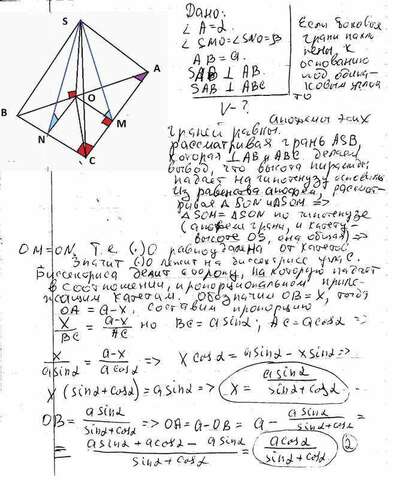 S
A
B
O
N
M
C
Дано:
∠ A = α.
∠ SMO = ∠ SNO = β
AB = a.
SAB ⊥ AB.
SAB ⊥ ABC
V - ?
Если боковая
грани накло
нены к
основанию
под одина-
ковым углом
то
апофемы этих
граней равны.
рассматривая грань ASB,
которая ⊥ AB и ABC делаем
вывод, что высота пирамиды
падает на гипотенузу основания
Из равенства апофем, рассмат-
ривая △ SON и △SOM =>
△SOM = △SON по гипотенузе
(апофеме грани, и катету-
высоте OS, она общая) =>
OM = ON, т.е. (·)O равноудалена от катетов.
Значит (·)O лежит на биссектрисе угла C.
Биссектриса делит сторону, на которую падает
в соотношении, пропорциональном приле-
жащим катетам. Обозначим OB = x, тогда
OA = a-x. составим пропорцию
x/BC = a-x/AC но BC = a sinα; AC = a cosα =>
x/a sinα = a-x/a cosα => x cosα = a sinα - x sinα =>
x (sinα + cosα) = a sinα => x = a sinα/sinα + cosα
OB = a sinα/sinα + cosα => OA = a - OB = a - a sinα/sinα + cosα =
= a sinα + a cosα - a sinα/sinα + cosα = a cosα/sinα + cosα ②